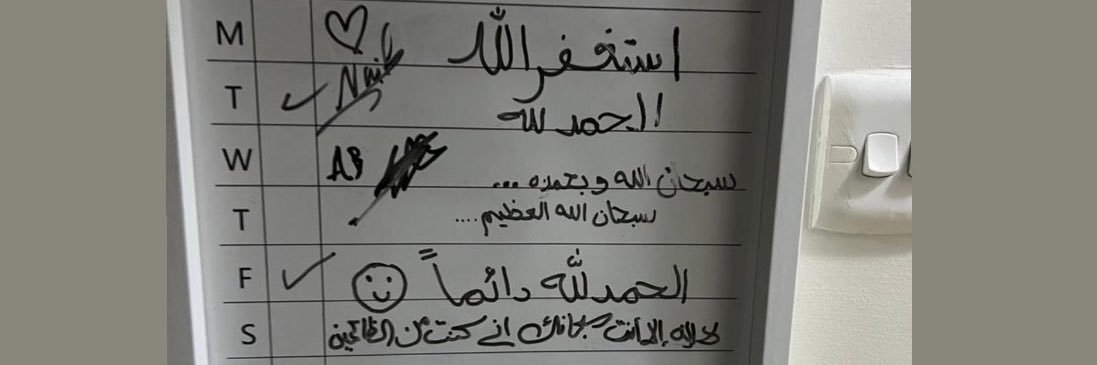 M استغفر الله
T الحمد لله
W AB سبحان الله وبحمده ...
T سبحان الله العظيم ....
F الحمد لله دائماً
S لا إله إلا أنت سبحانك اني كنت من الظالمين